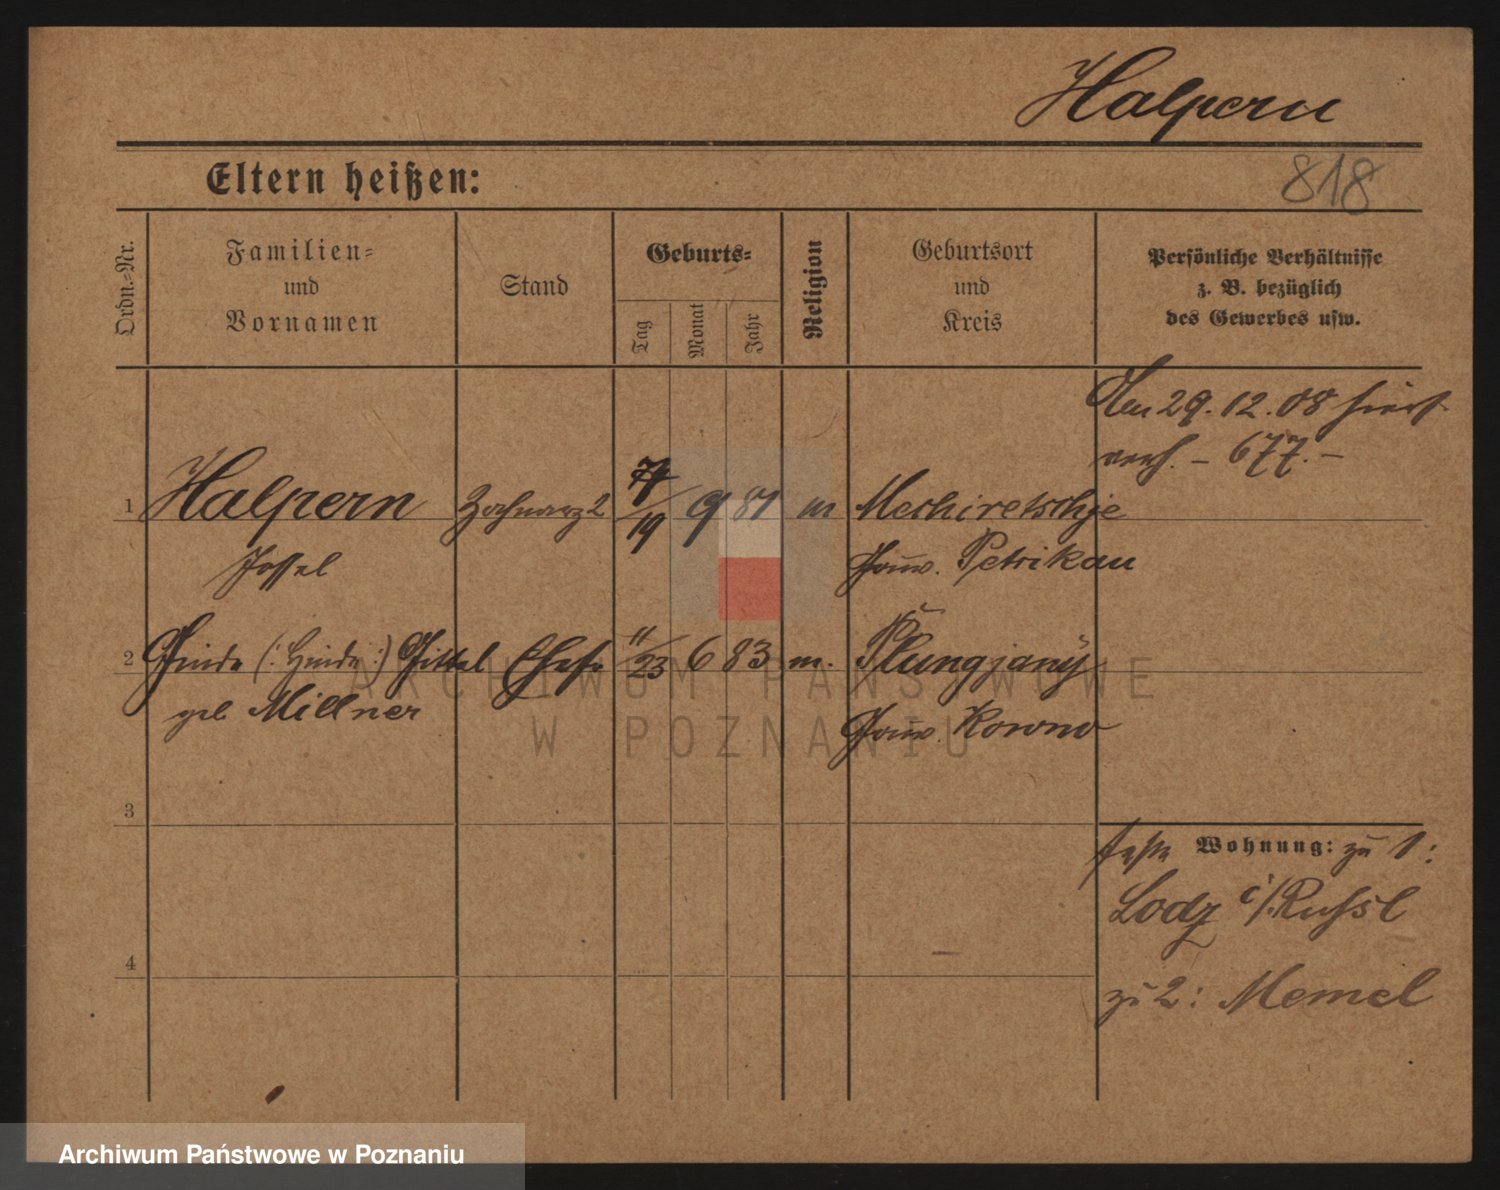 Halpern
818
Eltern heißen:
Ordn.=Nr.
Familien=
und
Vornamen
Stand
Geburts=
Tag
Monat
Jahr
Religion
Geburtsort
und
Kreis
Persönliche Verhältnisse
z. B. bezüglich
des Gewerbes usw.
Den 29.12.08 hiers.
verh. – 677. –
1 Halpern Zahnarzt 7/19 9 81 m Meshiretschje
Jossel Gouv. Petrikau
2 Ginde (: Hinde :) Gittel Ehefr 11/23 6 83 m. Plungjany
geb Millner Gouv. Kowno
3
feste Wohnung: zu 1:
Lodz i/Russl
4
zu 2: Memel
ARCHIWUM PAŃSTWOWE
W POZNANIU
Archiwum Państwowe w Poznaniu